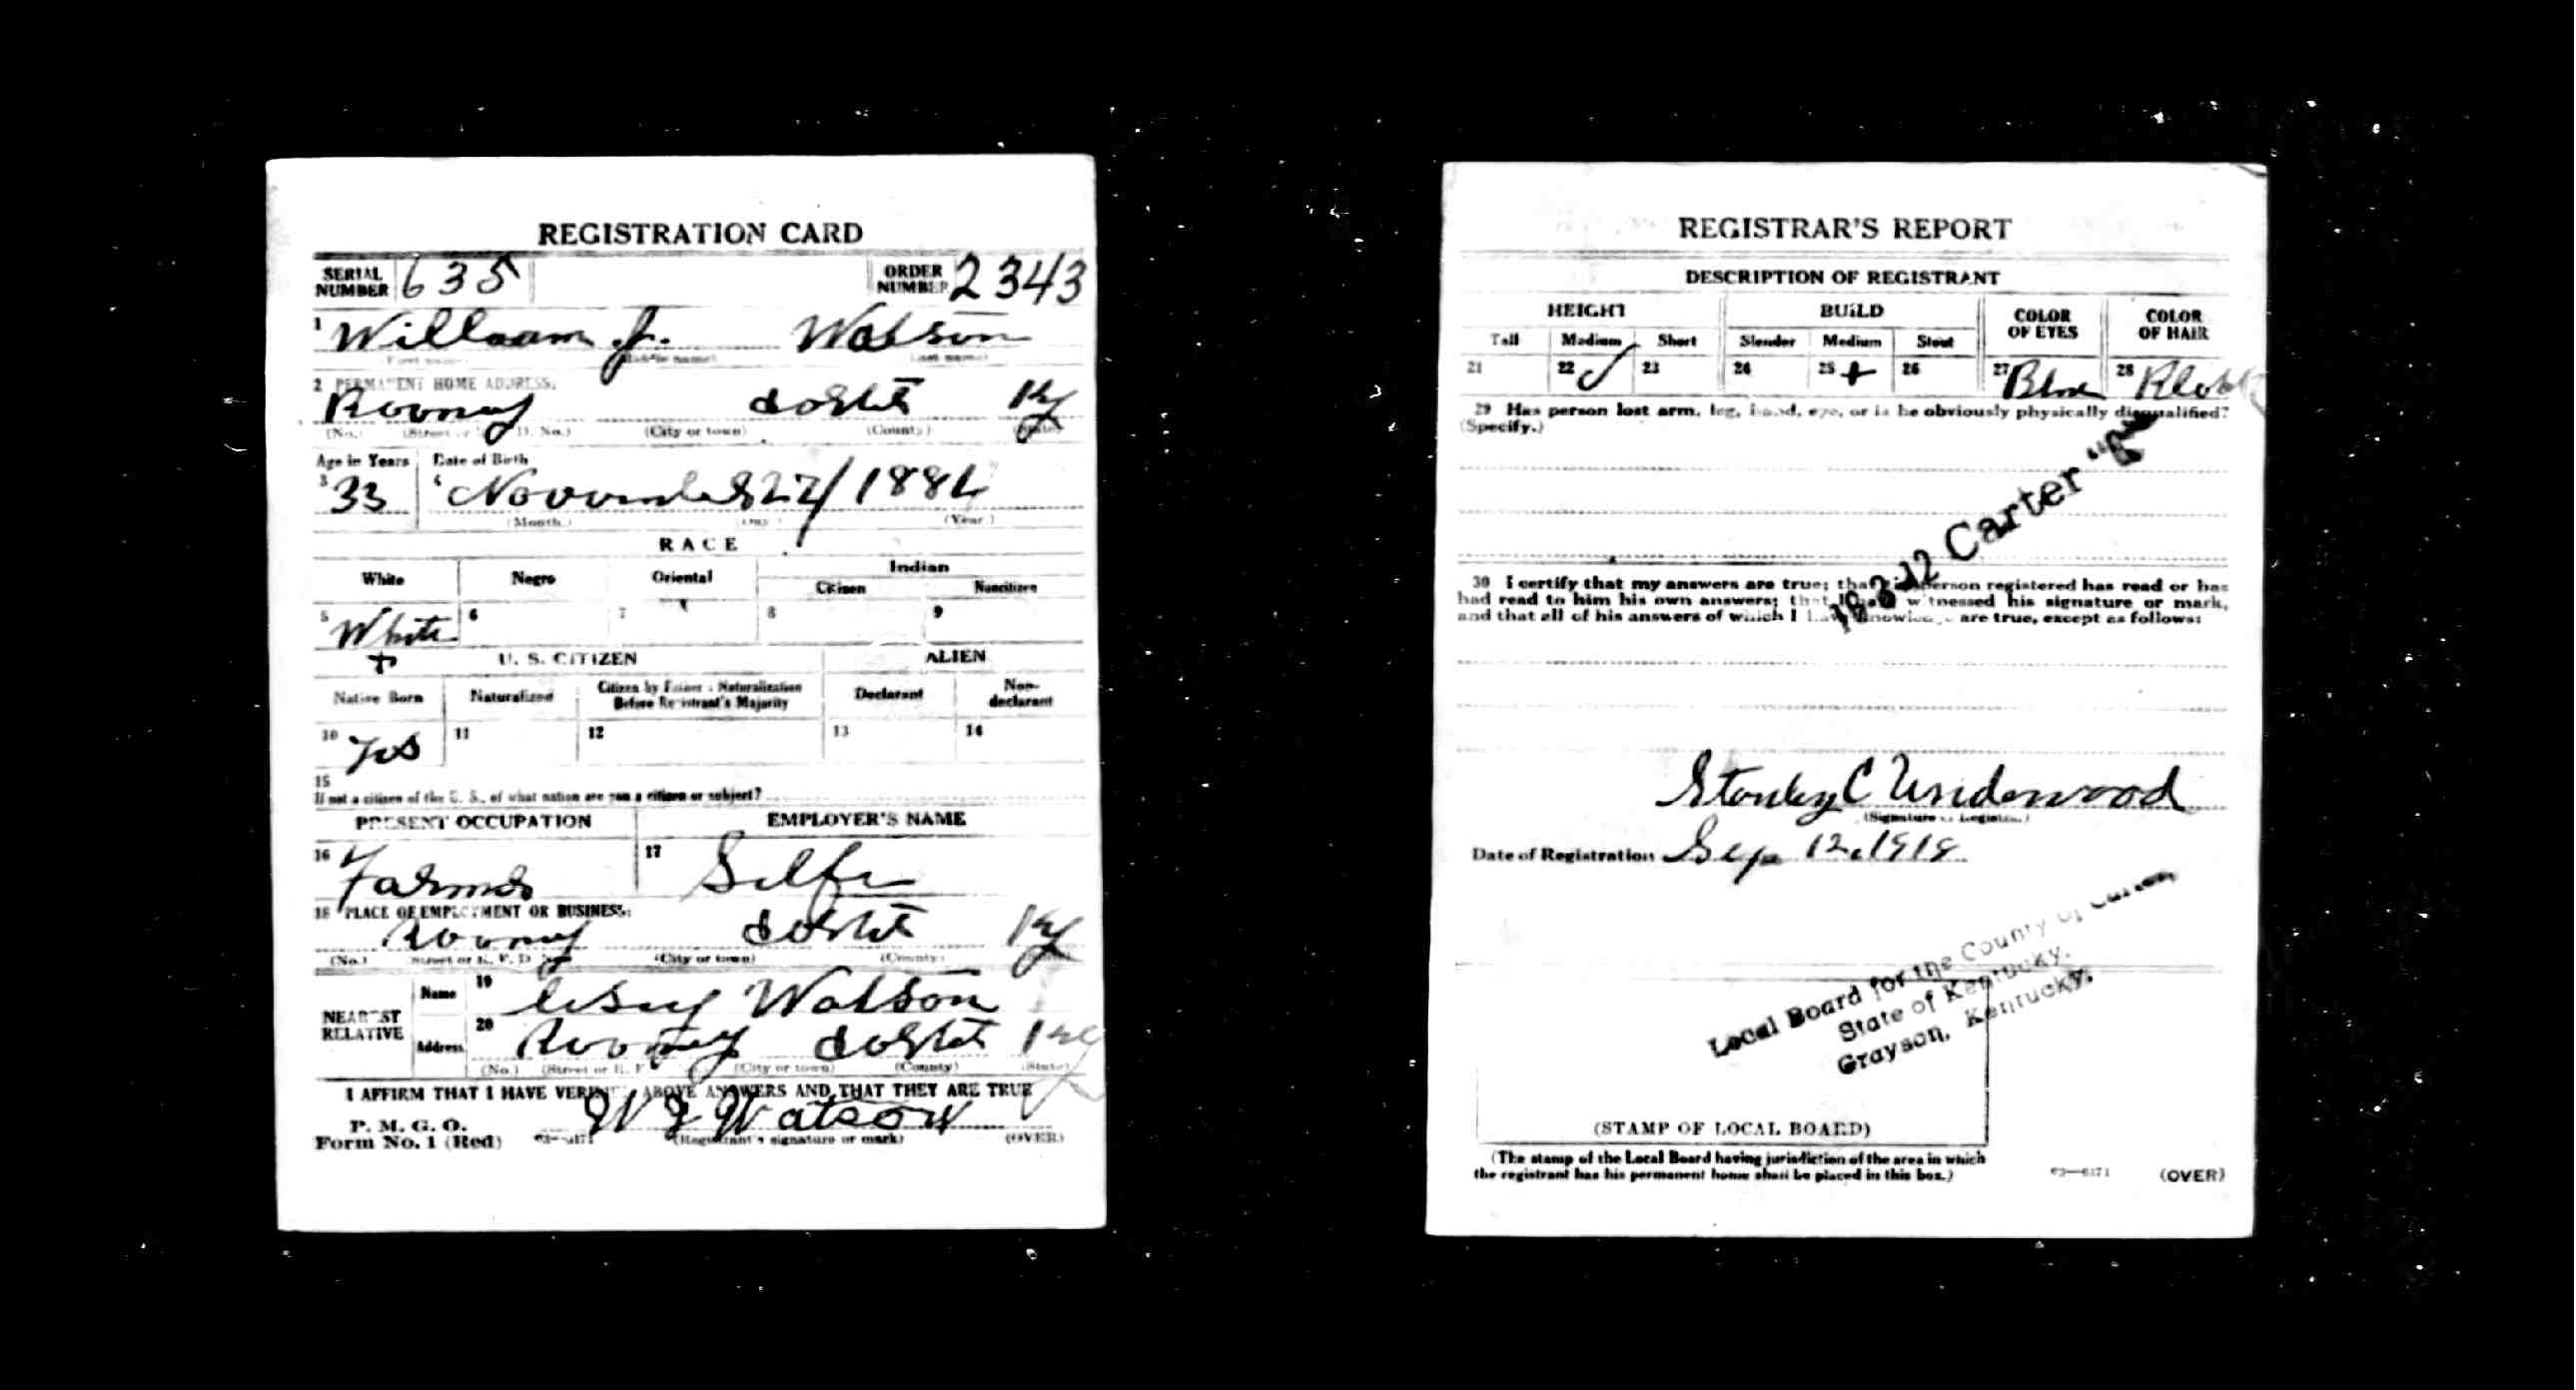 REGISTRATION CARD
SERIAL NUMBER 635 ORDER NUMBER 2343
1 William J. Watson
(First name) (Middle name) (Last name)
2 PERMANENT HOME ADDRESS:
Rooney Ky
(No.) (Street or R. F. D. No.) (City or town) (County) (State)
Age in Years Date of Birth
3 33 4 November 27 / 1884
(Month.) (Day.) (Year.)
RACE
White Negro Oriental Indian
Citizen Noncitizen
5 White 6 7 8 9
U. S. CITIZEN ALIEN
Native Born Naturalized Citizen by Father's Naturalization Before Registrant's Majority Declarant Non-declarant
10 Yes 11 12 13 14
15
If not a citizen of the U. S., of what nation are you a citizen or subject?
PRESENT OCCUPATION EMPLOYER'S NAME
16 Farmer 17 Self
18 PLACE OF EMPLOYMENT OR BUSINESS:
Rooney Ky
(No.) (Street or R. F. D. No.) (City or town) (County) (State)
NEAREST RELATIVE
Name 19 Watson
Address 20 Rooney
(No.) (Street or R. F. (City or town) (County) (State)
I AFFIRM THAT I HAVE VERIFIED ABOVE ANSWERS AND THAT THEY ARE TRUE
P. M. G. O.
Form No. 1 (Red) W J Watson
(Registrant's signature or mark) (OVER)
REGISTRAR'S REPORT
DESCRIPTION OF REGISTRANT
HEIGHT BUILD COLOR OF EYES COLOR OF HAIR
Tall Medium Short Slender Medium Stout
21 22 ✓ 23 24 25 + 26 27 Blue 28
29 Has person lost arm, leg, hand, eye, or is he obviously physically disqualified?
(Specify.)
Carter
30 I certify that my answers are true; that the person registered has read or has
had read to him his own answers; that I have witnessed his signature or mark,
and that all of his answers of which I have knowledge are true, except as follows:
Stanley C Underwood
(Signature of Registrar)
Date of Registration Sep 12, 1918
Local Board for the County of Carter,
State of Kentucky.
Grayson, Kentucky.
(STAMP OF LOCAL BOARD)
(The stamp of the Local Board having jurisdiction of the area in which
the registrant has his permanent home shall be placed in this box.)
03—6171 (OVER)